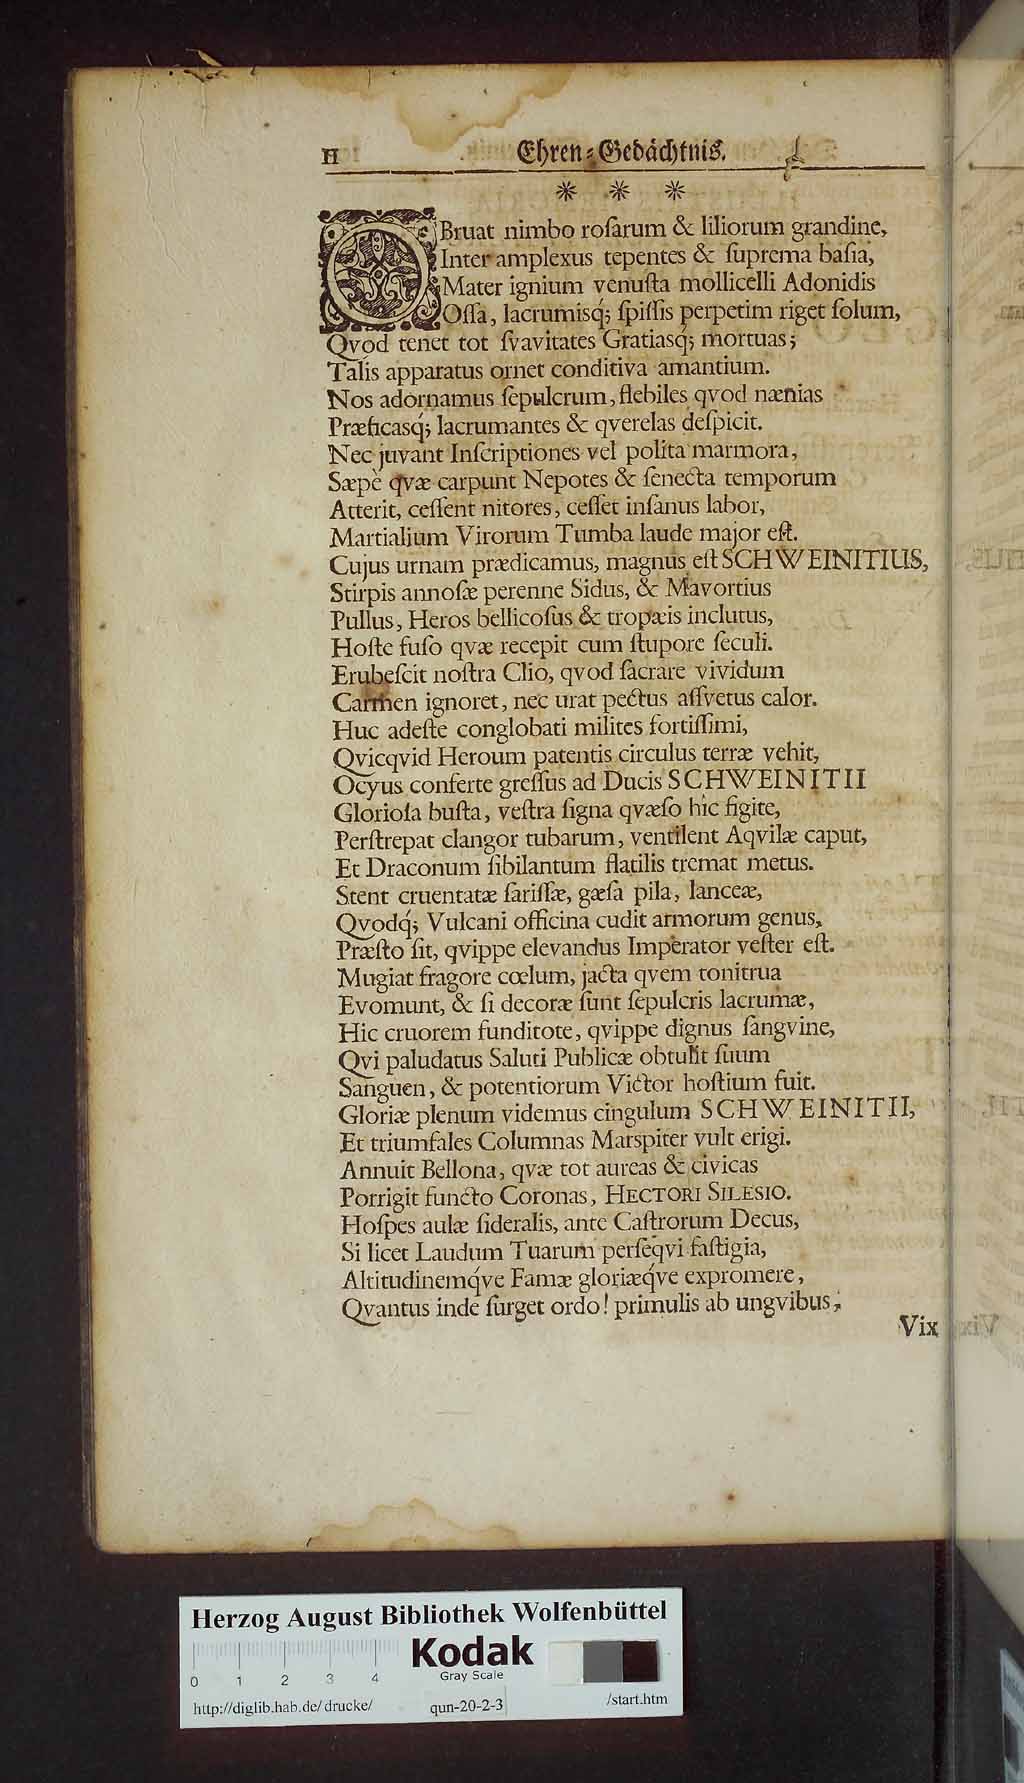 H Ehren-Gedächtnis.
* * *
OBruat nimbo roſarum & liliorum grandine,
Inter amplexus tepentes & ſuprema baſia,
Mater ignium venuſta mollicelli Adonidis
Oſſa, lacrumisq́; ſpiſſis perpetim riget ſolum,
Qvod tenet tot ſvavitates Gratiasq́; mortuas;
Talis apparatus ornet conditiva amantium.
Nos adornamus ſepulcrum, flebiles qvod nænias
Præficasq́; lacrumantes & qverelas deſpicit.
Nec juvant Inſcriptiones vel polita marmora,
Sæpè qvæ carpunt Nepotes & ſenecta temporum
Atterit, ceſſent nitores, ceſſet inſanus labor,
Martialium Virorum Tumba laude major eſt.
Cujus urnam prædicamus, magnus eſt SCHWEINITIUS,
Stirpis annoſæ perenne Sidus, & Mavortius
Pullus, Heros bellicoſus & tropæis inclutus,
Hoſte fuſo qvæ recepit cum ſtupore ſeculi.
Erubeſcit noſtra Clio, qvod ſacrare vividum
Carmen ignoret, nec urat pectus aſſvetus calor.
Huc adeſte conglobati milites fortiſſimi,
Qvicqvid Heroum patentis circulus terræ vehit,
Ocyus conferte greſſus ad Ducis SCHWEINITII
Glorioſa buſta, veſtra ſigna qvæſo hic figite,
Perſtrepat clangor tubarum, ventilent Aqvilæ caput,
Et Draconum ſibilantum flatilis tremat metus.
Stent cruentatæ ſariſſæ, gæſa pila, lanceæ,
Qvodq́; Vulcani officina cudit armorum genus,
Præſto ſit, qvippe elevandus Imperator veſter eſt.
Mugiat fragore cœlum, jacta qvem tonitrua
Evomunt, & ſi decoræ ſunt ſepulcris lacrumæ,
Hic cruorem funditote, qvippe dignus ſangvine,
Qvi paludatus Saluti Publicæ obtulit ſuum
Sanguen, & potentiorum Victor hoſtium fuit.
Gloriæ plenum videmus cingulum SCHWEINITII,
Et triumfales Columnas Marspiter vult erigi.
Annuit Bellona, qvæ tot aureas & civicas
Porrigit functo Coronas, HECTORI SILESIO.
Hoſpes aulæ ſideralis, ante Caſtrorum Decus,
Si licet Laudum Tuarum perſeqvi faſtigia,
Altitudinemq́ve Famæ gloriæq́ve expromere,
Qvantus inde ſurget ordo! primulis ab ungvibus,
Vix
Herzog August Bibliothek Wolfenbüttel
Kodak
Gray Scale
0 1 2 3 4
http://diglib.hab.de/drucke/ qun-20-2-3 /start.htm